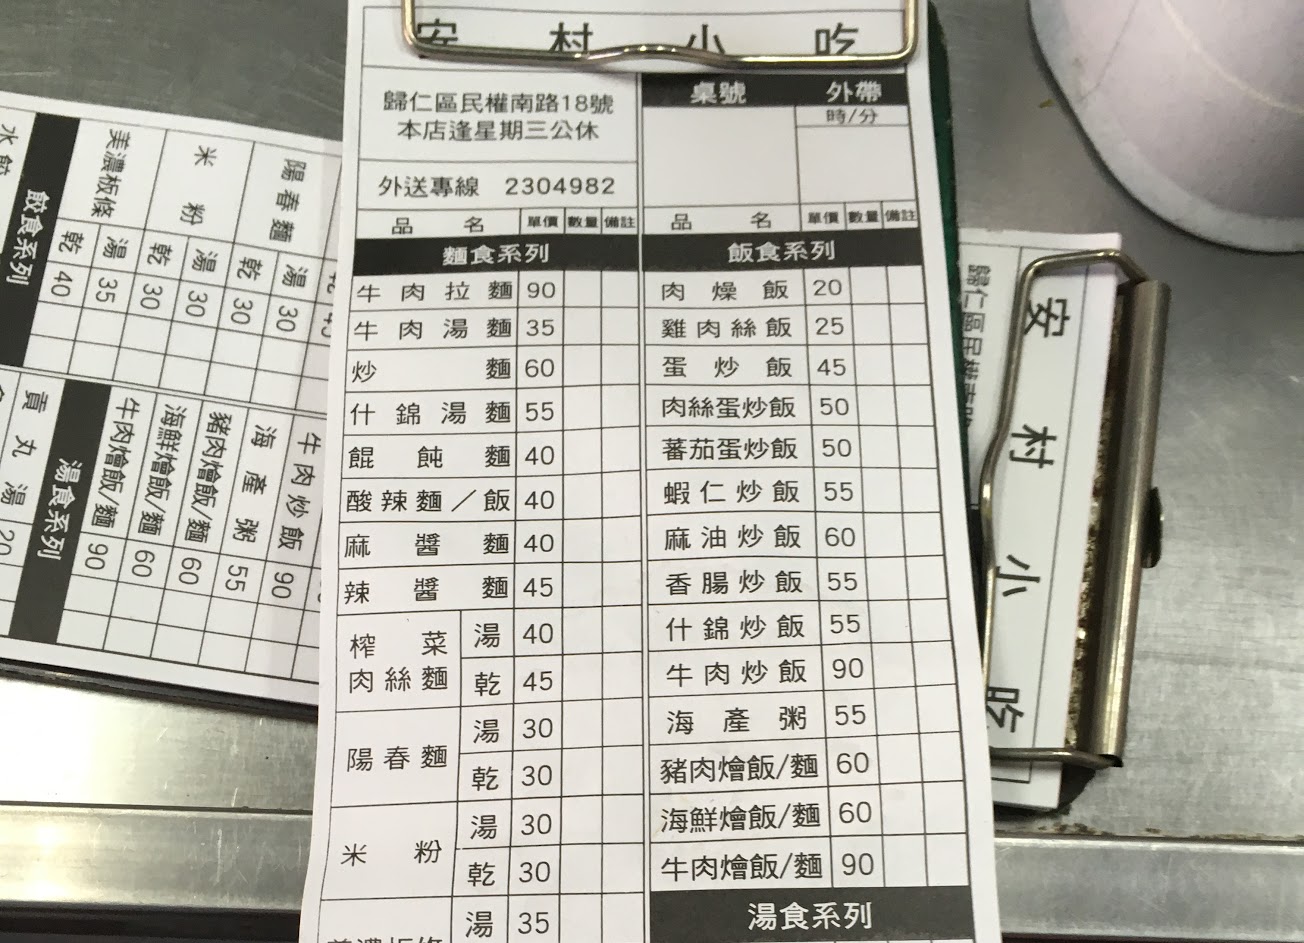 安村小吃
歸仁區民權南路18號
本店逢星期三公休
外送專線 2304982
桌號 外帶
時/分
品名 單價 數量 備註
麵食系列
牛肉拉麵 90
牛肉湯麵 35
炒麵 60
什錦湯麵 55
餛飩麵 40
酸辣麵／飯 40
麻醬麵 40
辣醬麵 45
榨菜肉絲麵 湯 40
乾 45
陽春麵 湯 30
乾 30
米粉 湯 30
乾 30
美濃板條 湯 35
品名 單價 數量 備註
飯食系列
肉燥飯 20
雞肉絲飯 25
蛋炒飯 45
肉絲蛋炒飯 50
蕃茄蛋炒飯 50
蝦仁炒飯 55
麻油炒飯 60
香腸炒飯 55
什錦炒飯 55
牛肉炒飯 90
海產粥 55
豬肉燴飯/麵 60
海鮮燴飯/麵 60
牛肉燴飯/麵 90
湯食系列
陽春麵 湯 30
乾 30
米粉 湯 30
乾 30
美濃板條 湯 35
乾 40
餃食系列
水餃
牛肉炒飯 90
海產粥 55
豬肉燴飯/麵 60
海鮮燴飯/麵 60
牛肉燴飯/麵 90
湯食系列
貢丸湯 20
安村小吃
歸仁區民權南路